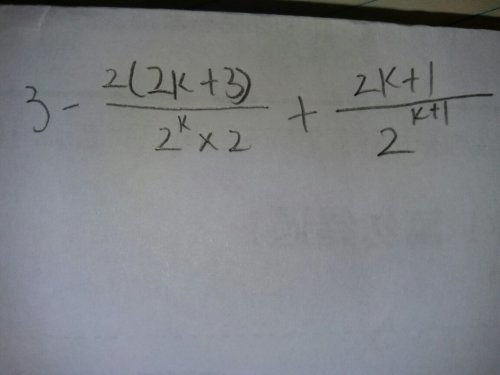 3 - \frac{2(2k+3)}{2^k × 2} + \frac{2k+1}{2^{k+1}}